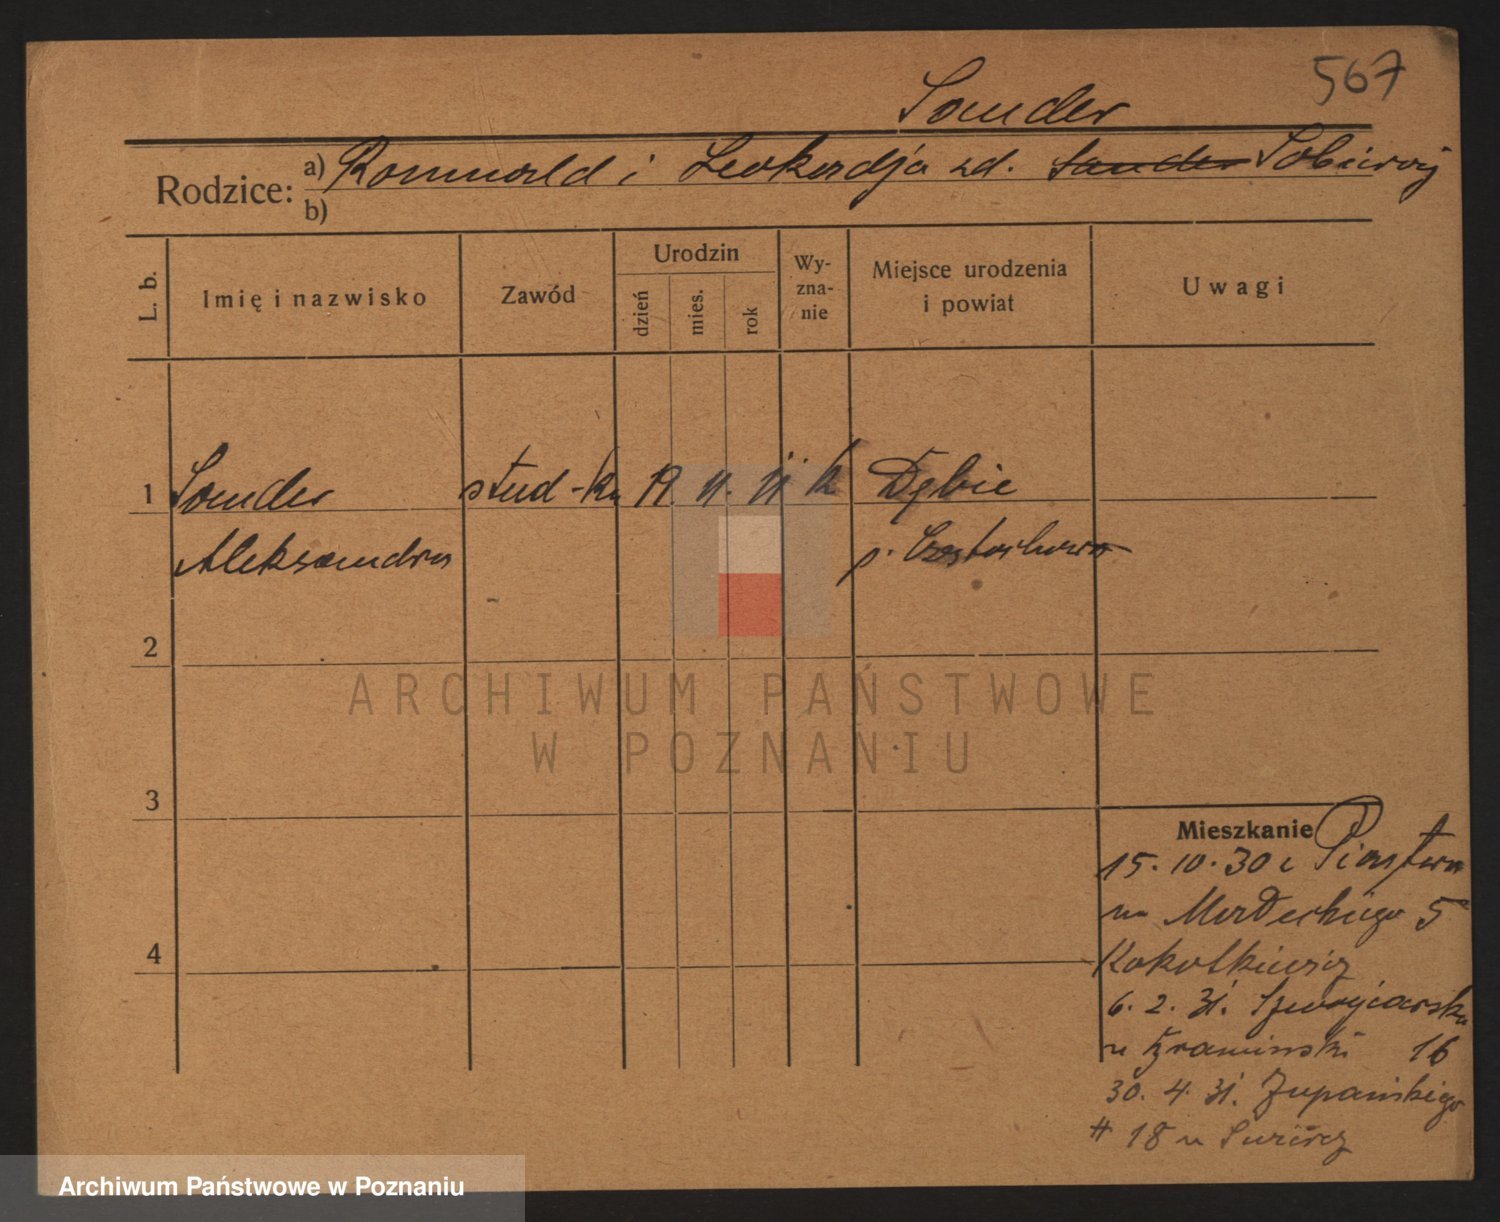 567
Sander
Rodzice: a) Romuald i Leokadja zd. Sander Sobieraj
b)
L. b. Imię i nazwisko Zawód Urodzin dzień mies. rok Wy-zna-nie Miejsce urodzenia i powiat Uwagi
1 Sander stud-ka 19. 11. 11 k Dębie
Aleksandra p. Częstochowa
2
ARCHIWUM PAŃSTWOWE
W POZNANIU
3
Mieszkanie
15.10.30 z Piastowa
na 5
4
6.2.31. Szwajcarska
u 16
30.4.31. Żupańskiego
18 u
Archiwum Państwowe w Poznaniu